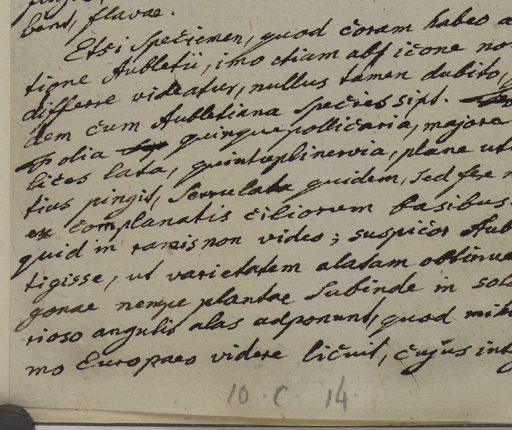 bent, flavae.
Etsi specimen, quod coram habeo a
tione Aubletii, imo etiam ab icone no
differre videatur, nullus tamen dubito,
dem cum Aubletiana species sint.
Folia quinquepollicaria, majore
lices lata, quintuplinervia, plane ut
tius pingit, serrulata quidem, sed fere
ex complanatis ciliorum basibus.
quid in ramis non video; suspicor Aub
tigisse, ut varietatem alatam obtinue
gonae nempe plantae subinde in solo
rioso angulis alas adponunt, quod mihi
mo Europaeo videre licuit, cujus int
10. C. 14.